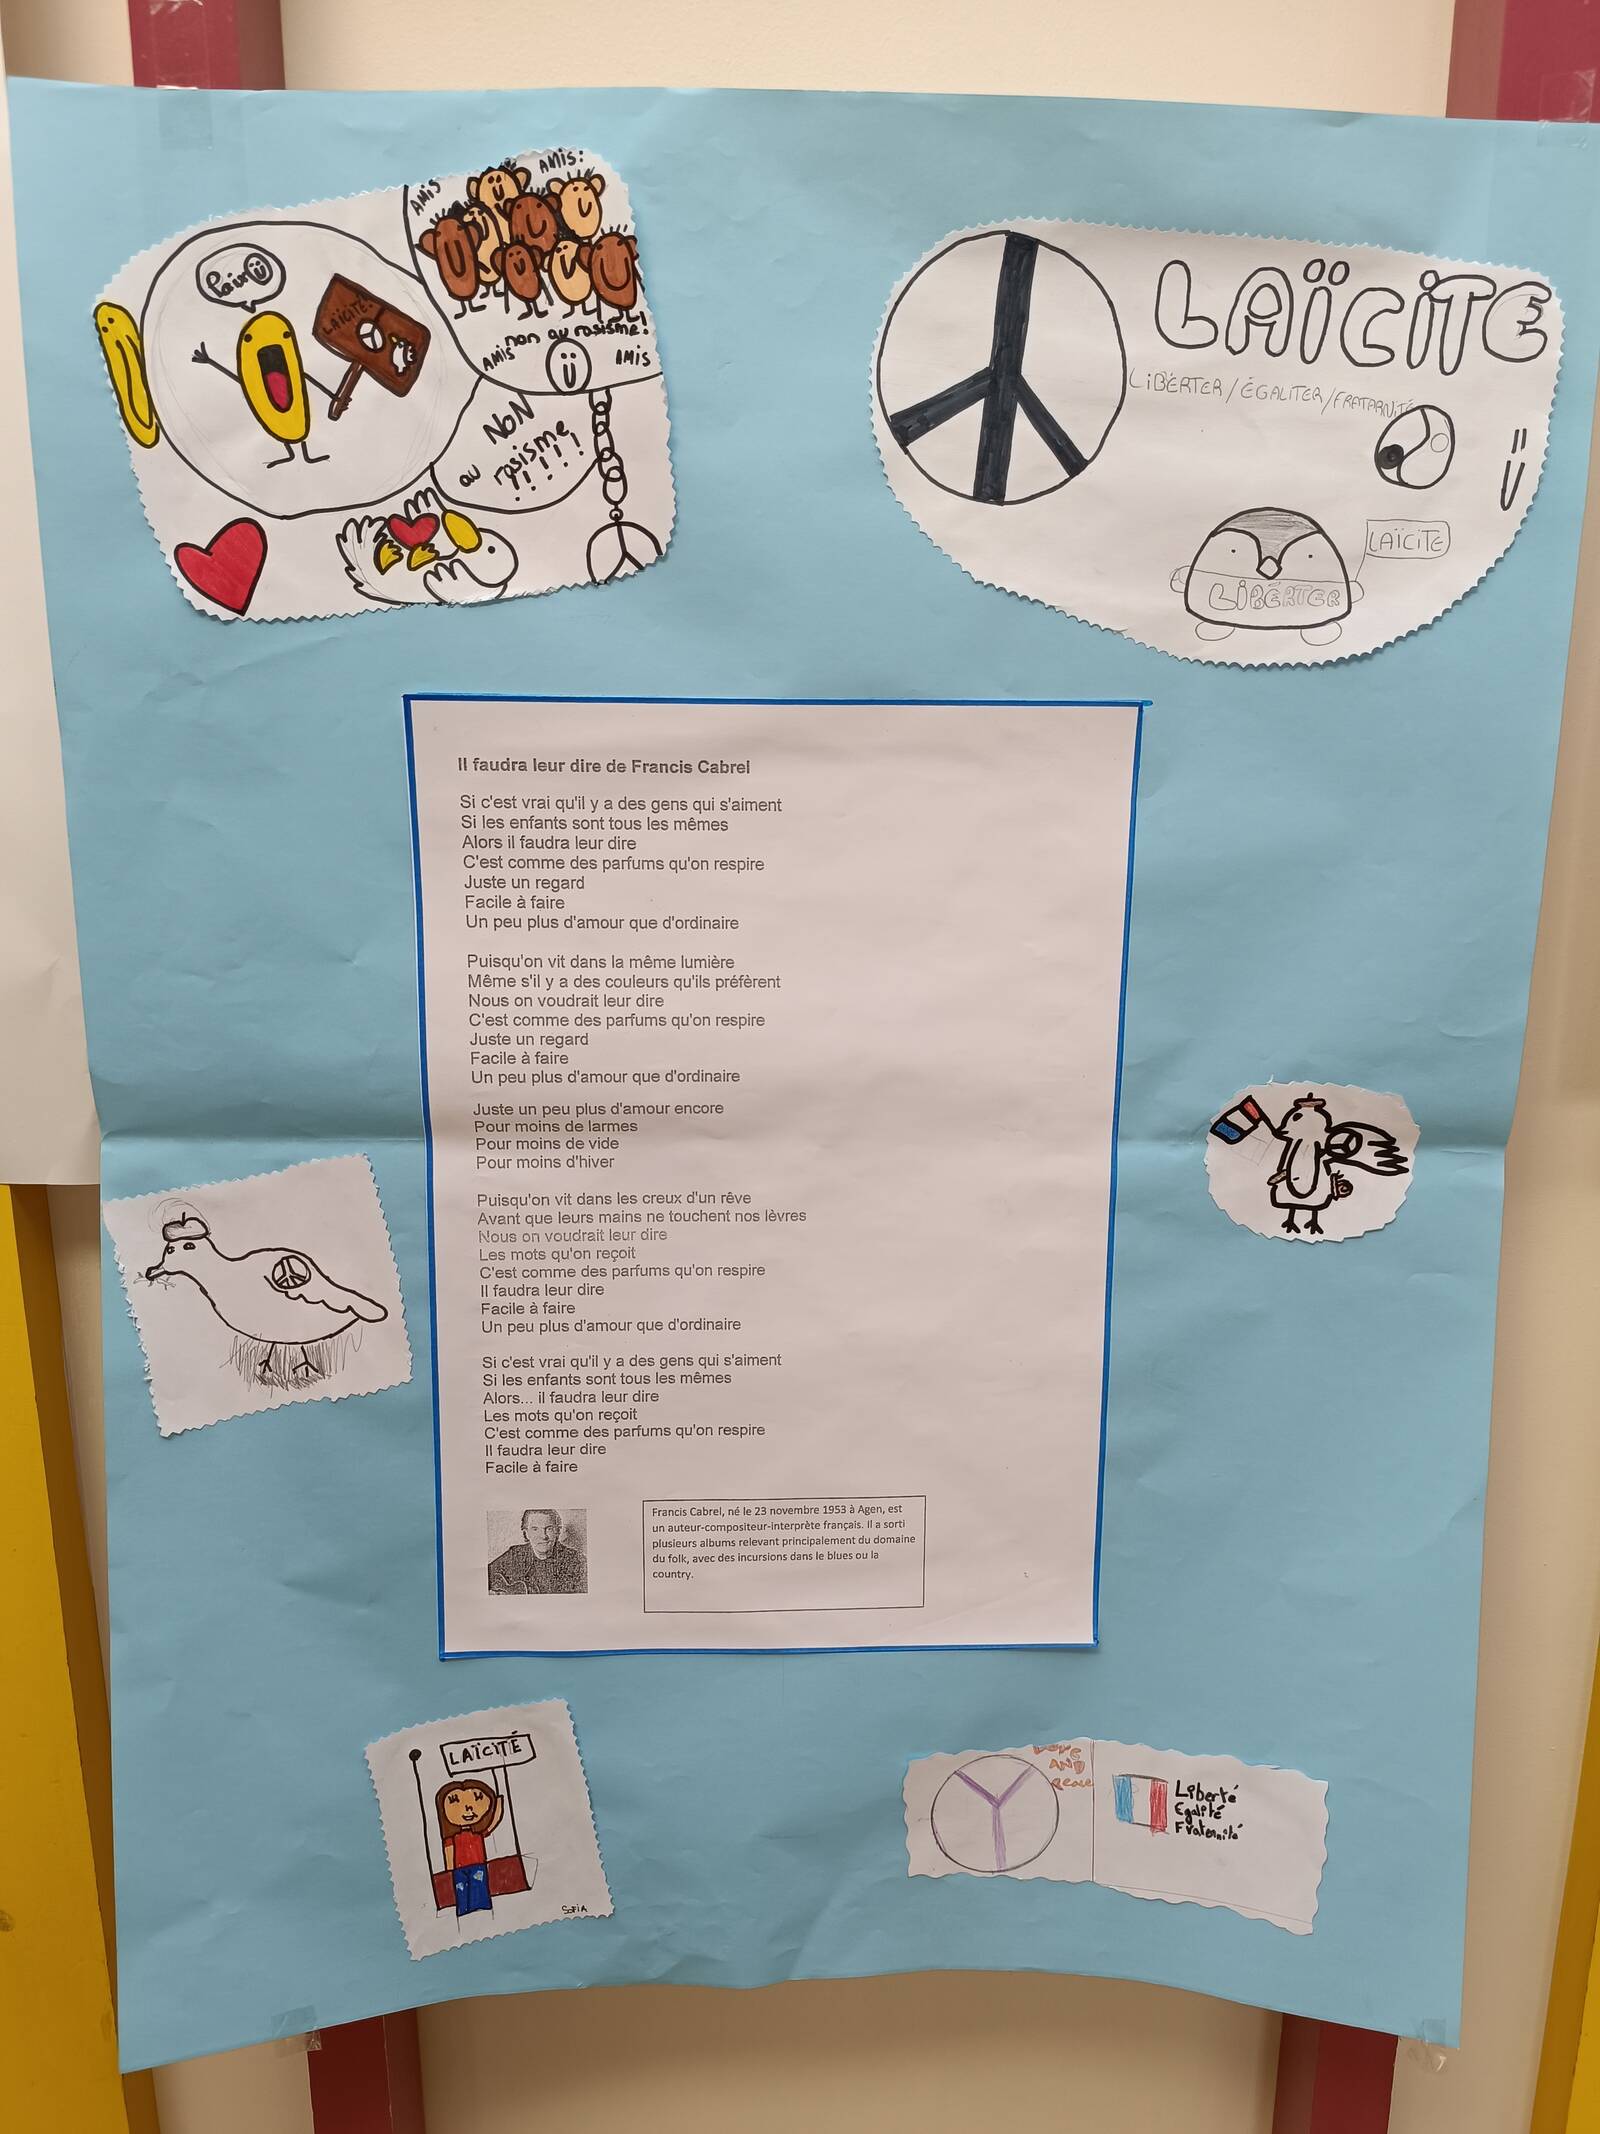 AMIS
AMIS:
Paix
LAÏCITÉ!
non au rasisme!
AMIS
AMIS
NON
au rasisme
!!!!!
LAÏCITE
LIBÉRTER / ÉGALITER / FRATARNITÉ
LAÏCITE
LIBÉRTER
Il faudra leur dire de Francis Cabrel
Si c'est vrai qu'il y a des gens qui s'aiment
Si les enfants sont tous les mêmes
Alors il faudra leur dire
C'est comme des parfums qu'on respire
Juste un regard
Facile à faire
Un peu plus d'amour que d'ordinaire
Puisqu'on vit dans la même lumière
Même s'il y a des couleurs qu'ils préfèrent
Nous on voudrait leur dire
C'est comme des parfums qu'on respire
Juste un regard
Facile à faire
Un peu plus d'amour que d'ordinaire
Juste un peu plus d'amour encore
Pour moins de larmes
Pour moins de vide
Pour moins d'hiver
Puisqu'on vit dans les creux d'un rêve
Avant que leurs mains ne touchent nos lèvres
Nous on voudrait leur dire
Les mots qu'on reçoit
C'est comme des parfums qu'on respire
Il faudra leur dire
Facile à faire
Un peu plus d'amour que d'ordinaire
Si c'est vrai qu'il y a des gens qui s'aiment
Si les enfants sont tous les mêmes
Alors... il faudra leur dire
Les mots qu'on reçoit
C'est comme des parfums qu'on respire
Il faudra leur dire
Facile à faire
Francis Cabrel, né le 23 novembre 1953 à Agen, est
un auteur-compositeur-interprète français. Il a sorti
plusieurs albums relevant principalement du domaine
du folk, avec des incursions dans le blues ou la
country.
LAÏCITÉ
SOFIA
LOVE
AND
Peace
Liberté
Egalité
Fraternité